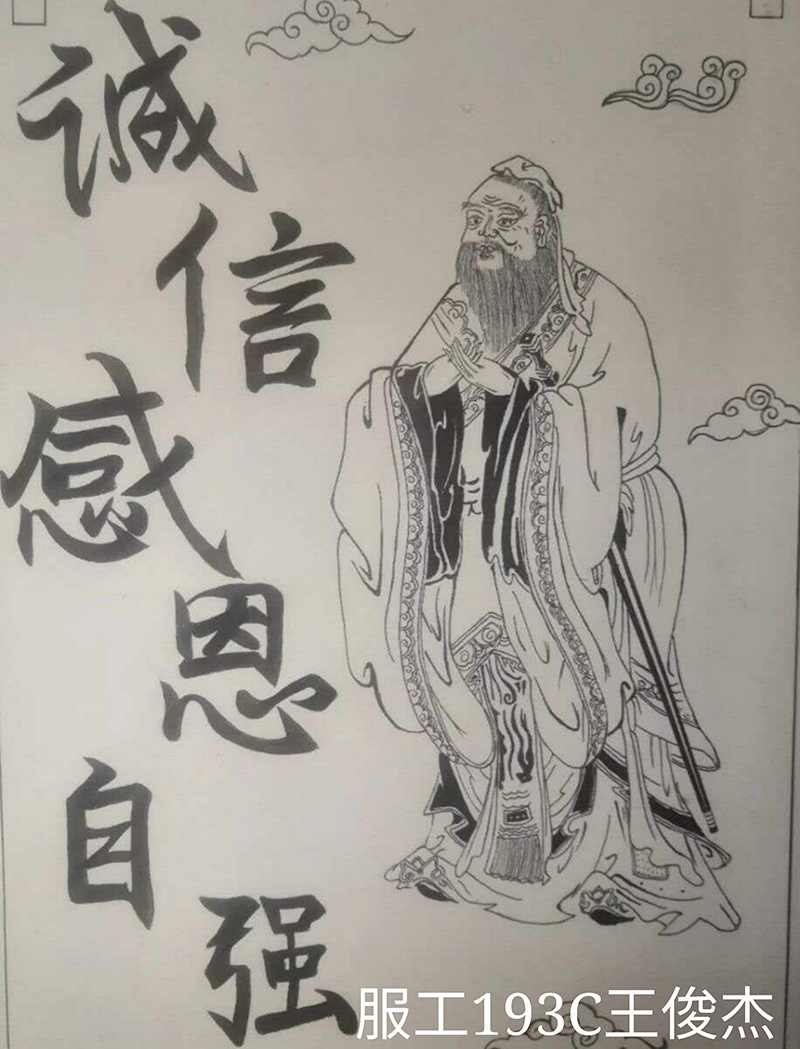 诚信
感恩
自强
服工193C王俊杰